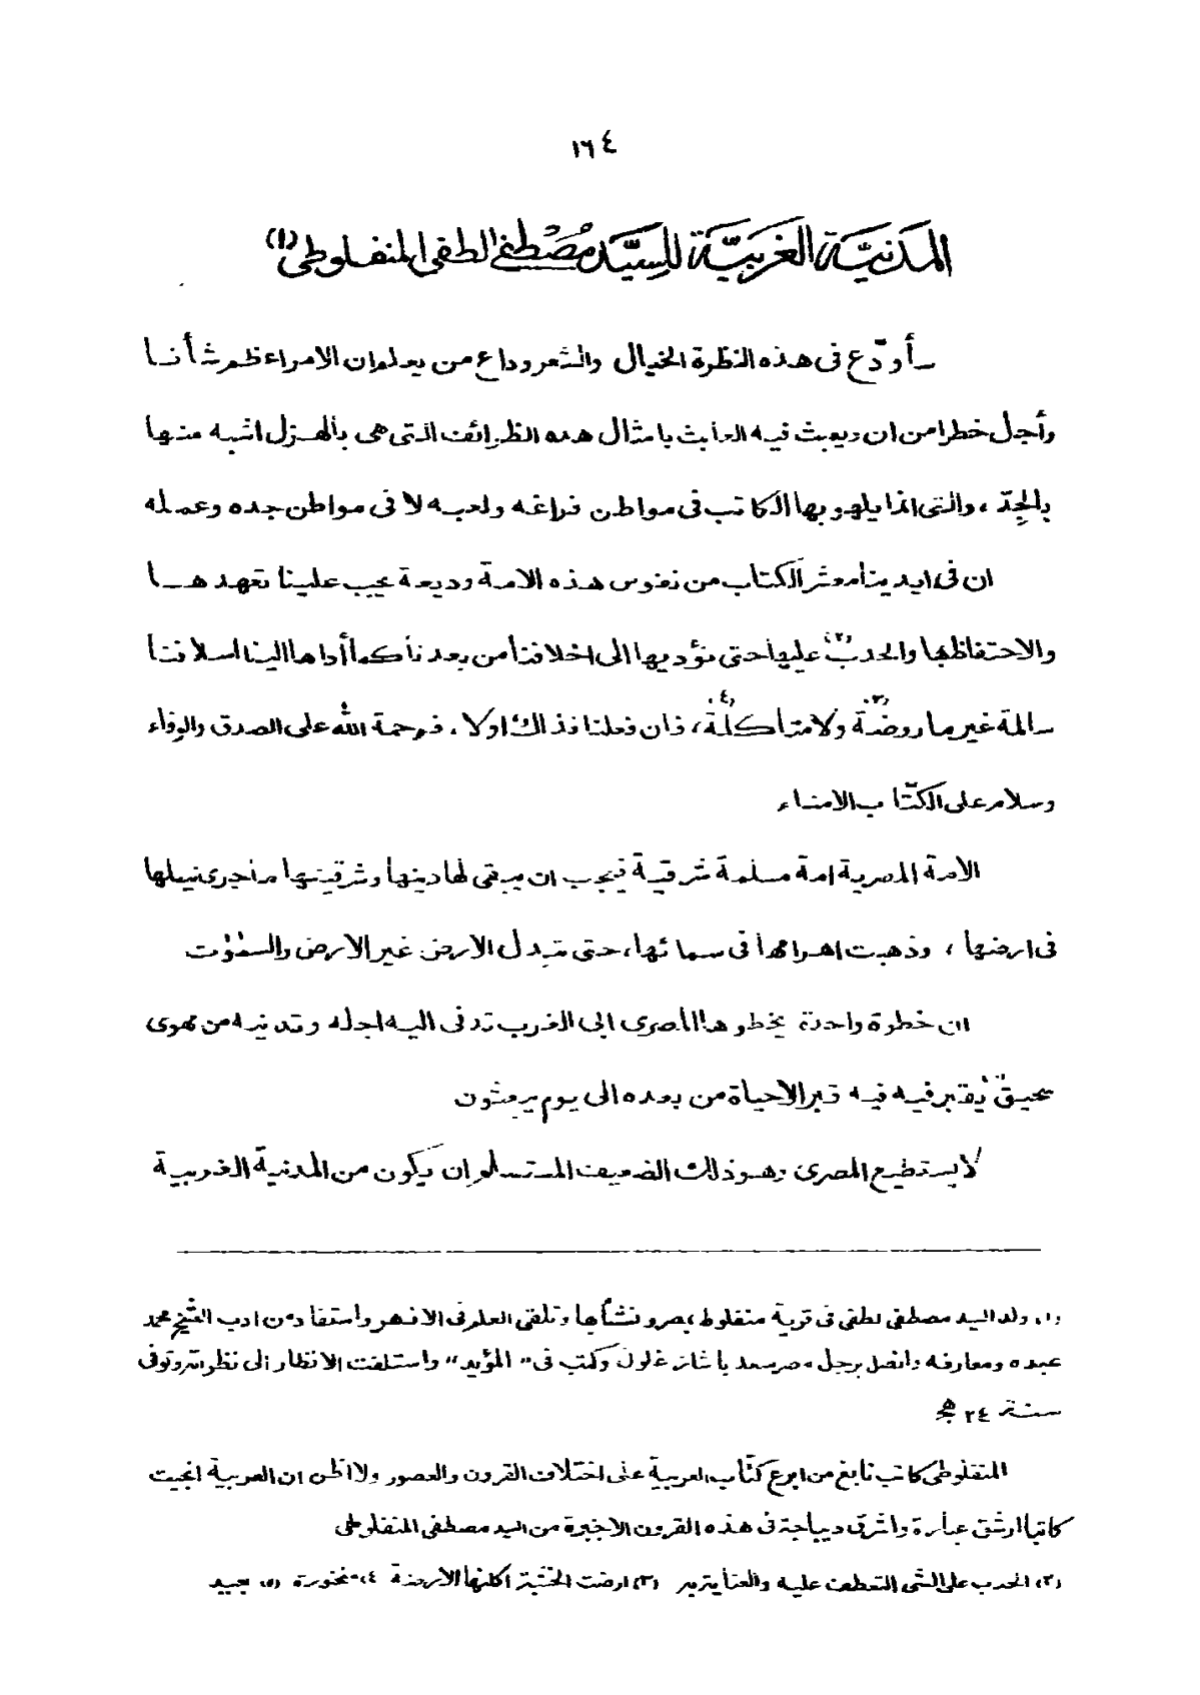 ١٦٤
المَدَنِيَّة الغَرَبِيَّة للسِيَّد مُصْطفى لطفى المنفلوطى (١)
سأودّع فى هذه النظرة الخيال والشعر وداع من يعلم ان الامر اعظم شأنا
وأجل خطرا من ان يعبث فيه العابث بامثال هذه الظرائف التى هى بالهزل اشبه منها
بالجِدّ ، والتى انما يلهو بها الكاتب فى مواطن فراغه ولعبه لا فى مواطن جده وعمله
ان فى ايدينا معشر الكتاب من نفوس هذه الامة وديعة يجب علينا تعهدها
والاحتفاظ بها والحدب (٢) عليها حتى نؤديها الى اخلافنا من بعدنا كما أداها الينا اسلافنا
سالمة غير مأروضة (٣) ولا متأكلة (٤)، فان فعلنا فذاك اولا ، فرحمة الله على الصدق والوفاء
وسلام على الكتّاب الامناء
الامة المصرية امة مسلمة شرقية فيجب ان يبقى لها دينها وشرقيتها ما جرى نيلها
فى ارضها ، وذهبت اهرامها فى سمائها، حتى تبدل الارض غير الارض والسمٰوٰت
ان خطوة واحدة يخطوها المصرى الى الغرب تدنى اليه اجله وتدنيه من مهوى
سحيق (٥) يُقبر فيه قبرا لا حياة من بعده الى يوم يبعثون
لا يستطيع المصرى وهو ذلك الضعيف المستسلم ان يكون من المدنية الغربية
(١) ولد السيد مصطفى لطفى فى قرية منفلوط بمصر ونشأ بها وتلقى العلم فى الازهر واستفاد من ادب الشيخ محمد
عبده ومعارفه واتصل برجل مصر سعد باشا زغلول وكتب فى "المؤيد" واستلفت الانظار الى نظراته وتوفى
سنة ٣٤ هج
المنفلوطى كاتب نابغ من ابرع كتّاب العربية على اختلاف القرون والعصور ولا اظن ان العربية انجبت
كاتبا ارشق عبارة واشرق ديباجة فى هذه القرون الاخيرة من السيد مصطفى المنفلوطى
(٢) الحدب على الشى التعطف عليه والعناية به (٣) ارضت الخشبة اكلتها الارضة (٤) منخورة (٥) بعيد